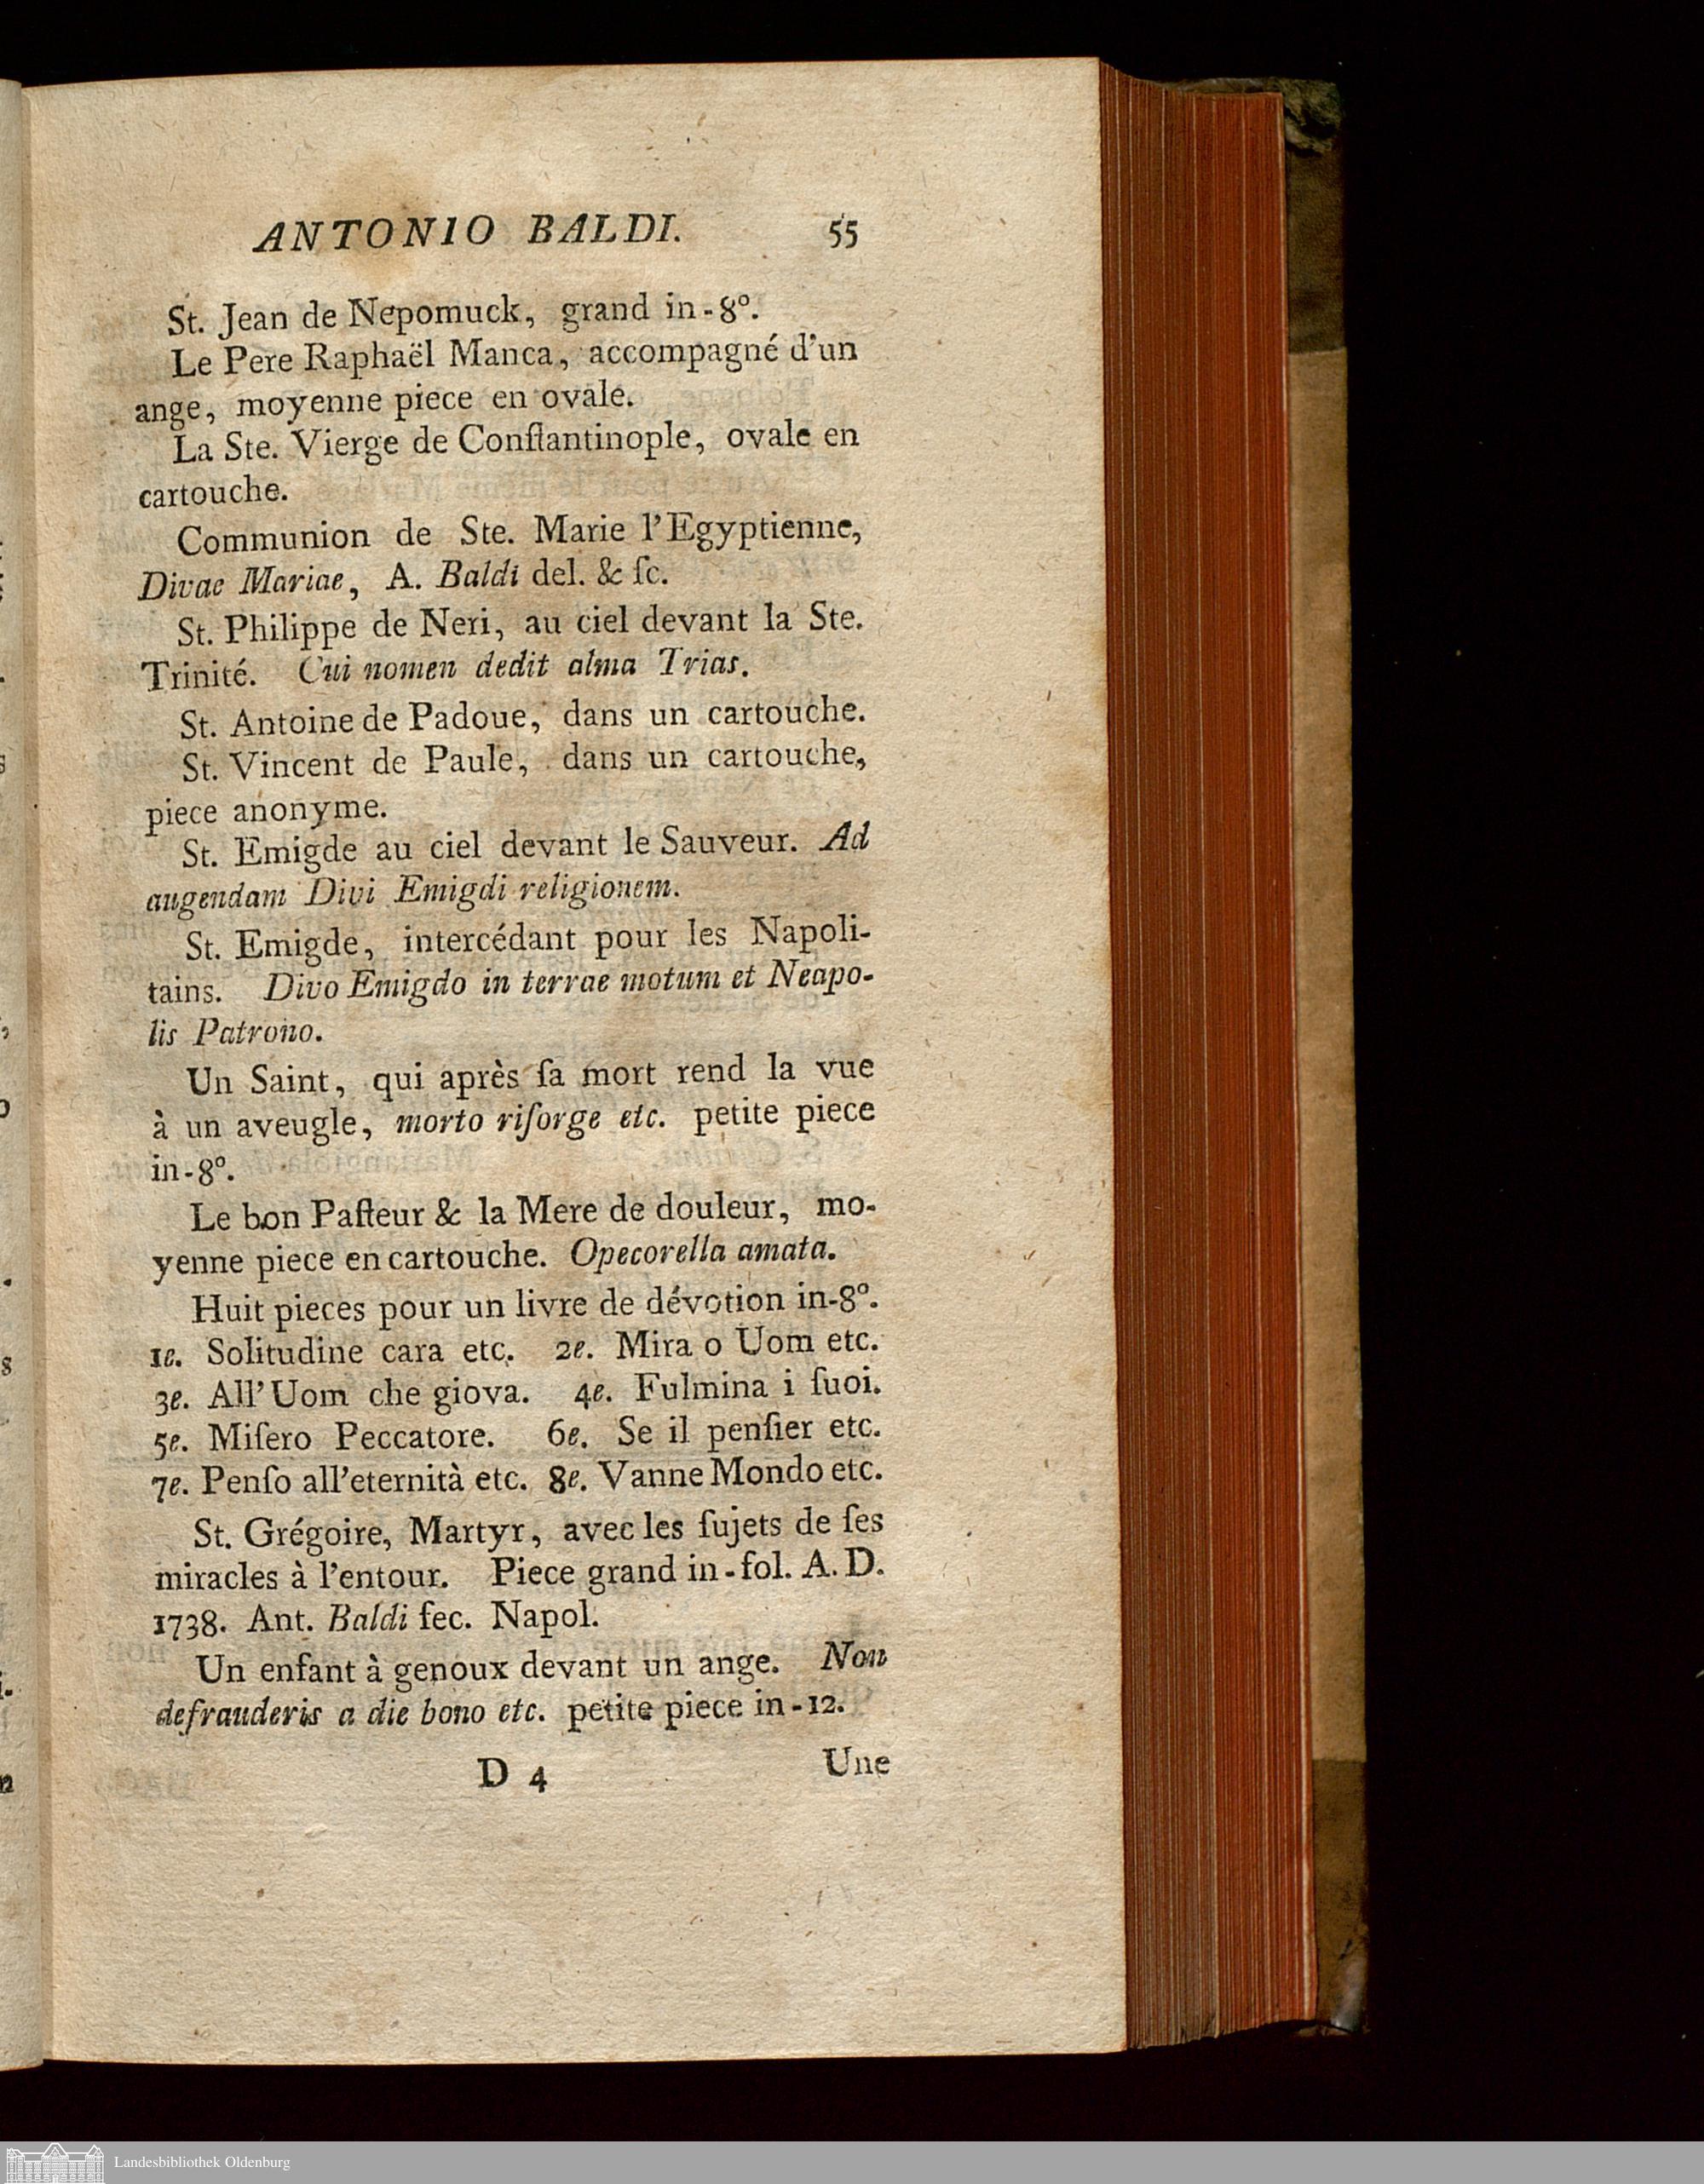 ANTONIO BALDI. 55
St. Jean de Nepomuck, grand in-8°.
Le Pere Raphaël Manca, accompagné d'un
ange, moyenne piece en ovale.
La Ste. Vierge de Conſtantinople, ovale en
cartouche.
Communion de Ste. Marie l'Egyptienne,
Divae Mariae, A. Baldi del. & ſc.
St. Philippe de Neri, au ciel devant la Ste.
Trinité. Cui nomen dedit alma Trias.
St. Antoine de Padoue, dans un cartouche.
St. Vincent de Paule, dans un cartouche,
piece anonyme.
St. Emigde au ciel devant le Sauveur. Ad
augendam Divi Emigdi religionem.
St. Emigde, intercédant pour les Napoli-
tains. Divo Emigdo in terrae motum et Neapo-
lis Patrono.
Un Saint, qui après ſa mort rend la vue
à un aveugle, morto riſorge etc. petite piece
in-8°.
Le bon Paſteur & la Mere de douleur, mo-
yenne piece en cartouche. Opecorella amata.
Huit pieces pour un livre de dévotion in-8°.
1e. Solitudine cara etc. 2e. Mira o Uom etc.
3e. All'Uom che giova. 4e. Fulmina i ſuoi.
5e. Miſero Peccatore. 6e. Se il penſier etc.
7e. Penſo all'eternità etc. 8e. Vanne Mondo etc.
St. Grégoire, Martyr, avec les ſujets de ſes
miracles à l'entour. Piece grand in-fol. A. D.
1738. Ant. Baldi fec. Napol.
Un enfant à genoux devant un ange. Non
defrauderis a die bono etc. petite piece in-12.
D 4 Une
Landesbibliothek Oldenburg